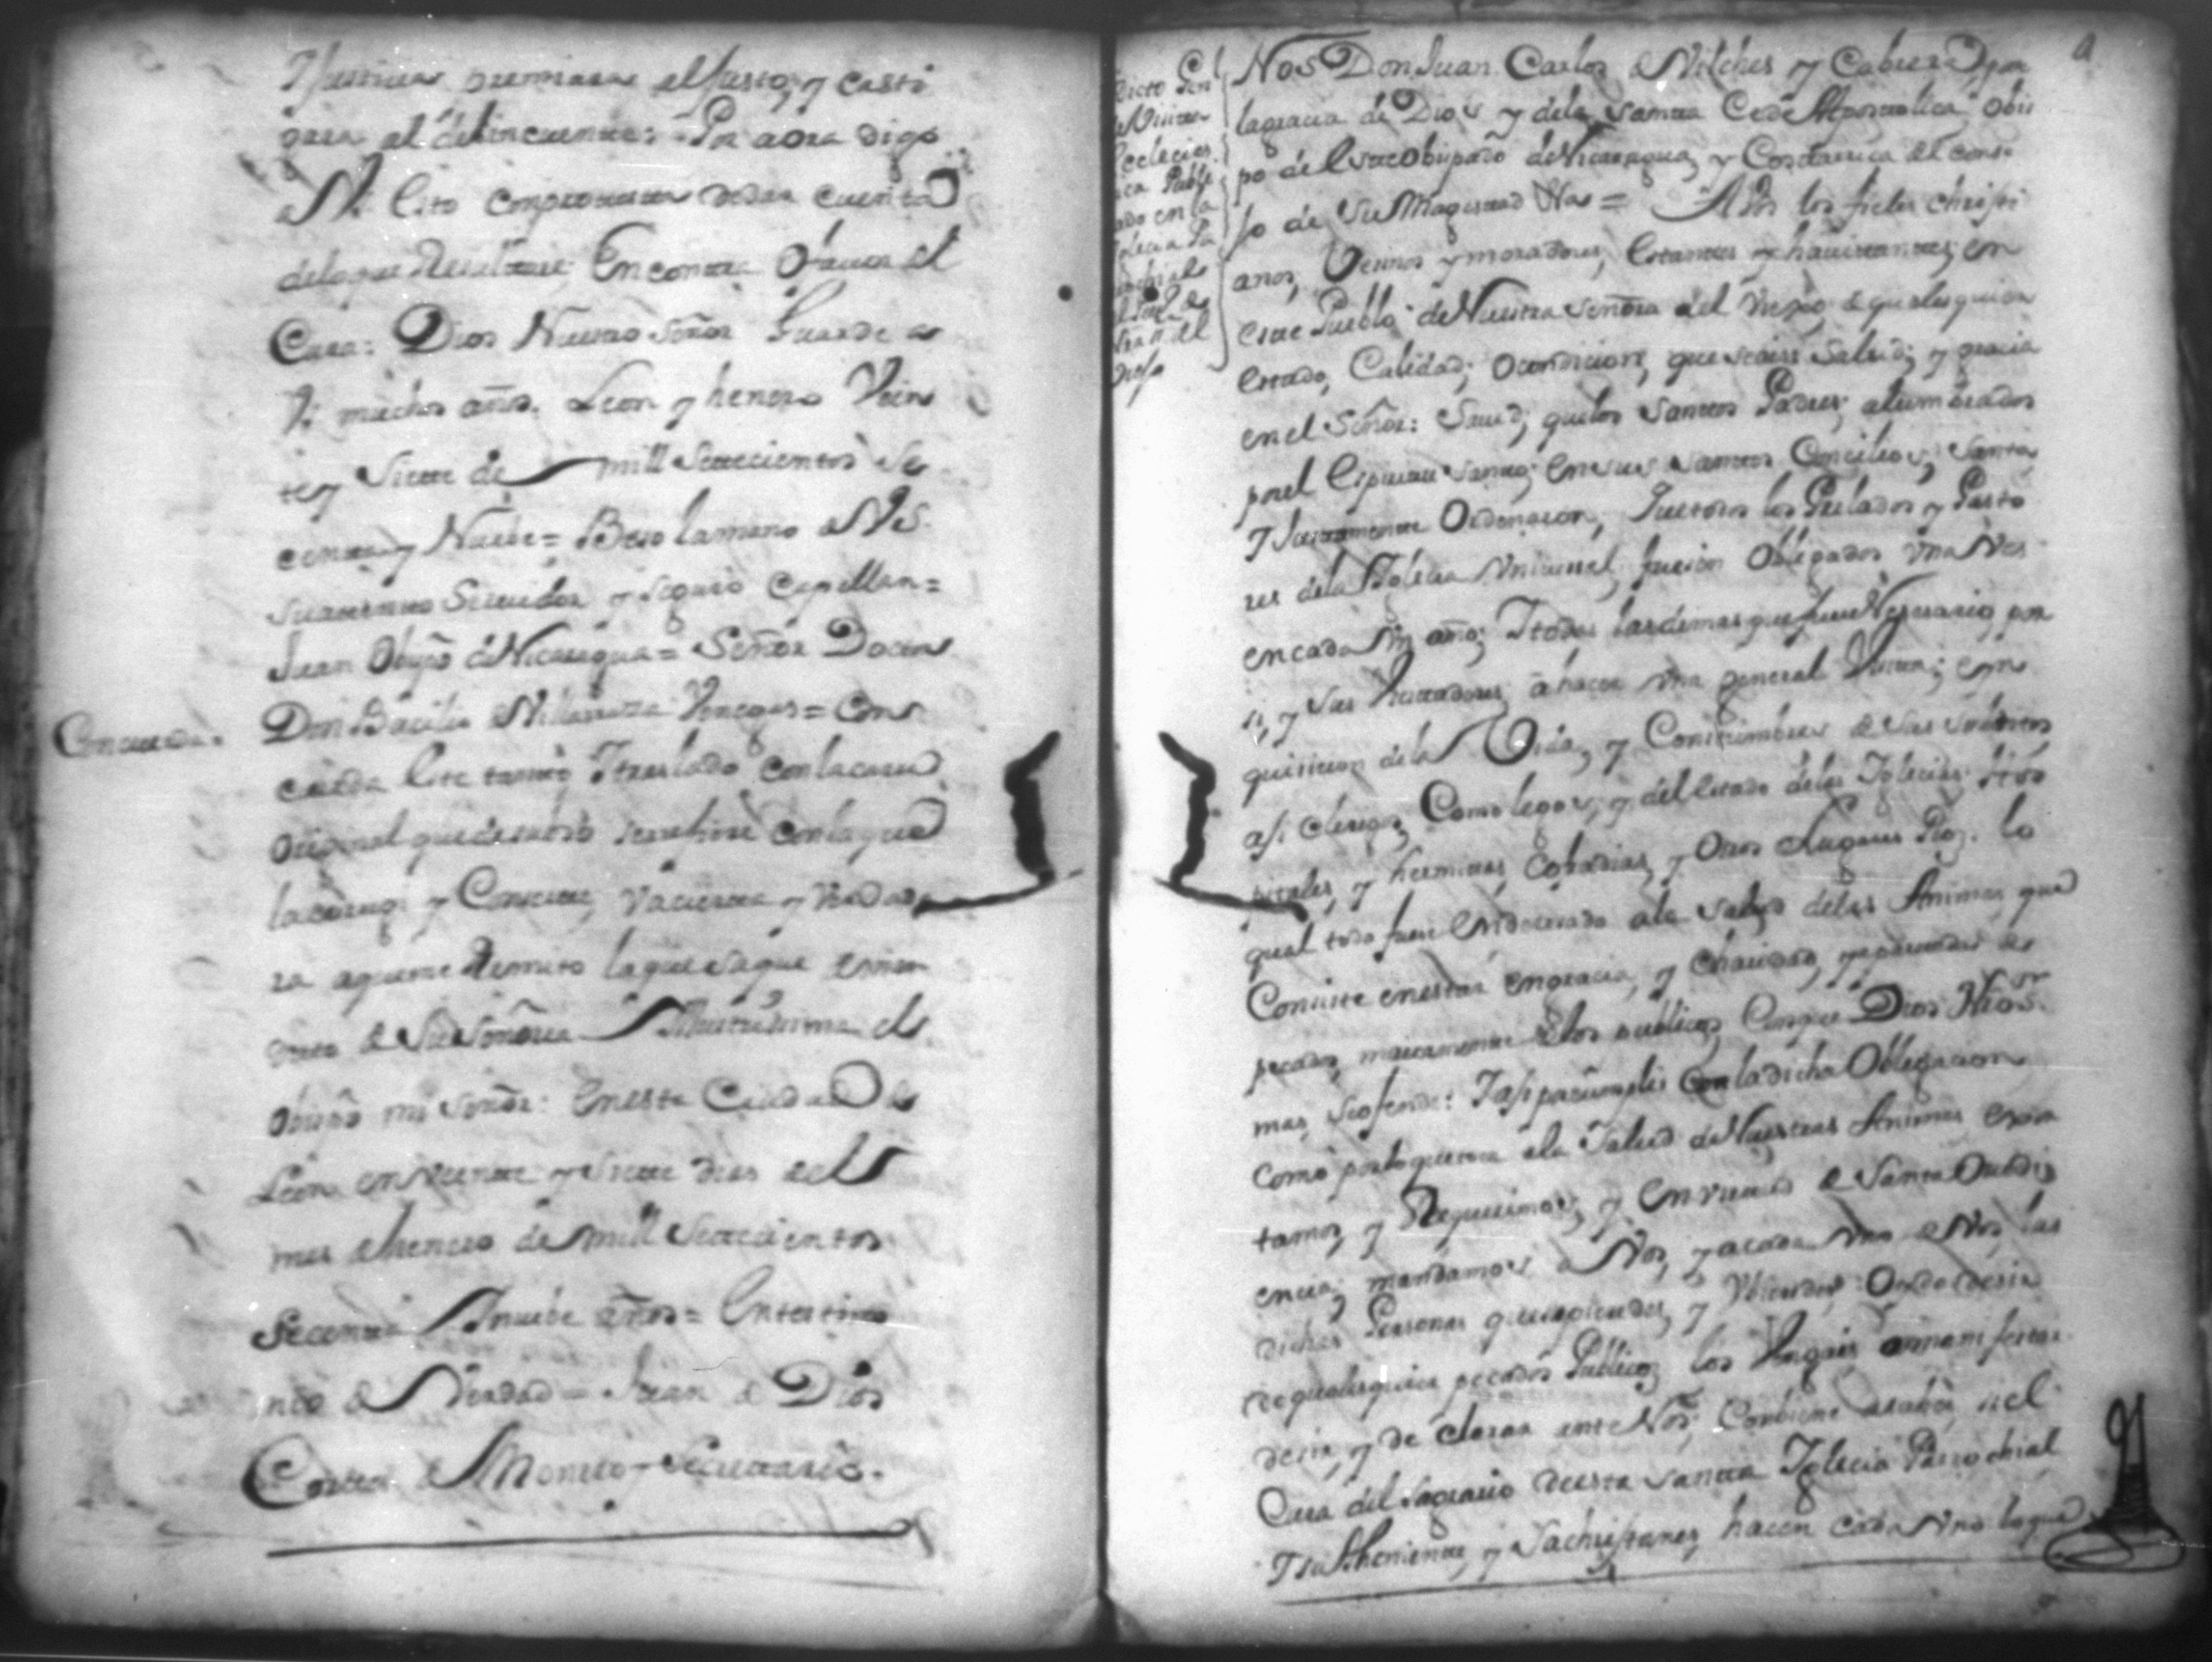 Justicia premiara el justo, y casti
gara al delincuente: Por aora digo
a Vd. Esto comprometa dedar cuenta
delo que Resultare; En contra O favor del
Cura: Dios Nuestro Señor Guarde a
V. muchos años. Leon y henero Vein
te y Siete de mill Settecientos Se
centa y Nuebe = Beso la mano de Vd.
su atento Servidor y seguro Capellan =
Juan Obispo de Nicaragua = Señor Doctor
Don Bacilio Villarraza Venegas = Con
Concuerda.
cuerda Este tanto, I traslado con la carta
Original que de suso se refiere con la que
la corregi y Concerte, va cierta y Verdade
ra aque me Remito la que saque de man
dato de Su Señoria Illustrissima el
Obispo mi Señor: En esta Ciudad de
Leon en veinte y Siete dias del
mes de henero de mill Settecientos
Secenta y nuebe años = En testimo
nio de Verdad = Juan de Dios
Cortes de Monrroy Secretario.
El
dicto Gen
de Visita
Eclecias
tica Publi
cado en la
Iglecia Pa
rrochial
del Pueblo de
Nra Sra del
Viejo
NOS Don Juan Carlos de Vilches y Cabrera por
la gracia de Dios y dela Santta Cede Apostolica Obis
po de este Obispado de Nicaragua, y Costarrica del conse
jo de Su Magestad Vas = A Vos los fieles christi
anos, Vecinos y moradores, Estantes y havitantes, en
este Pueblo de Nuestra Señora del Viejo, de qualesquier
Estado, Calidad, O condicion, que seais salud, y gracia
en el Señor: Saved, que los Santtos Padres, alumbrados
por el Espiritu Santto, en sus Santtos Concilios, Santta
I Justamente Ordenaron, Que todos los Prelados y Pasto
res dela Iglecia Universal, fuesen Obligados una Ves
en cada un año, I todas las demas que fuere Nesesario, por
si, y Sus Visitadores, a hacer una general Visita, e yn
quisicion de la Vida, y Constumbres de sus subditos
asi clerigos, Como legos, y del Estado delas Iglecias hos
pitales, y hermitas, Cofradias, y Otros Lugares Pios. lo
qual todo fuese Enderesado a la Salud delas Animas, que
Conciste en estar en gracia, y charidad, y apartadas de
pecados, maiormente de los publicos, Conque Dios Nro Sr.
mas, se ofende: I asi para cumplir Con la dicha Obligacion
Como por lo que toca a la Salud de Nuestras Animas exor
tamos, y Requerimos; y en virtud de Santa Ovedi
encia, mandamos a Vos, y a cada uno de Vos, las
dichas Personas que supieredes, y Vbieredes Oydo desir
de qualesquier pecados Publicos, los Vengais a manifestar
desir, y de clarar ante Nos; Conbiene a saber, si el
Cura del Sagrario de esta Santta Iglecia Parrochial
I su Theniente, y Sachristanes, hacen cada uno lo que